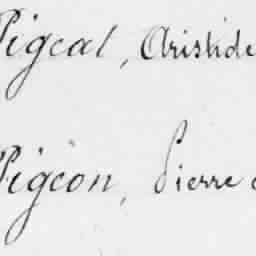 Pigeal, Aristide
Pigeon, Pierre